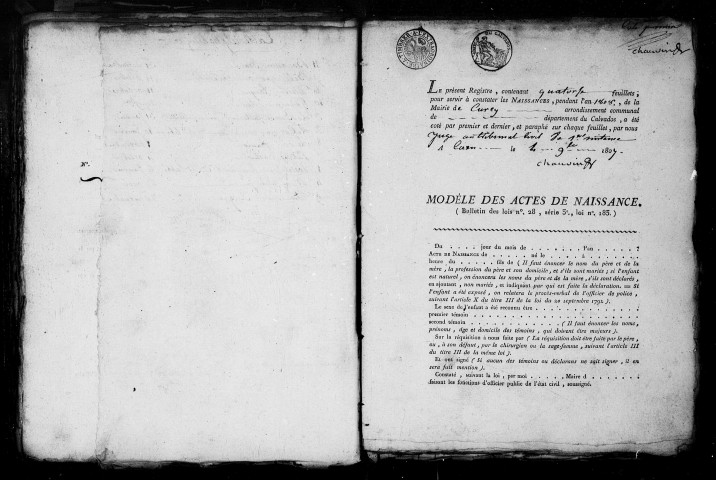 N°.
chauvin
LE présent Registre, contenant quatorze feuillets,
pour servir à constater les NAISSANCES, pendant l'an 1808, de la
Mairie de arrondissement communal
de département du Calvados, a été
coté par premier et dernier, et paraphé sur chaque feuillet, par nous
juge au tribunal Civil de
A Caen le 1807.
chauvin
MODÈLE DES ACTES DE NAISSANCE.
( Bulletin des lois n°. 28, série 3e, loi n°. 183. )
Du . . . . jour du mois de . . . . . . . l'an . . . . . ?
ACTE DE NAISSANCE de . . . . . . né le . . . . . à . . . . .
heure du . . . . . . fils de ( Il faut énoncer le nom du père et de la
mère, la profession du père et son domicile, et s'ils sont mariés ; si l'enfant
est naturel, on énoncera les noms du père et de la mère, s'ils sont déclarés,
en ajoutant, non mariés, et indiquant par qui est faite la déclaration. ou Si
l'enfant a été exposé, on relatera le procès-verbal de l'officier de police,
suivant l'article X du titre III de la loi du 20 septembre 1792 ).
Le sexe de l'enfant a été reconnu être . . . . . . . . . .
premier témoin . . . . . . . . . . . . . . . . . .
second témoin . . . . . . . . . . ( Il faut énoncer les noms,
prénoms, âge et domicile des témoins, qui doivent être majeurs ).
Sur la réquisition à nous faite par ( La réquisition doit être faite par le père,
ou, à son défaut, par le chirurgien ou la sage-femme, suivant l'article III
du titre III de la même loi ).
Et ont signé ( Si aucun des témoins ou déclarans ne sait signer, il en
sera fait mention ).
Constaté, suivant la loi, par moi . . . . . , Maire d . . . . . . .
faisant les fonctions d'officier public de l'état civil, soussigné.